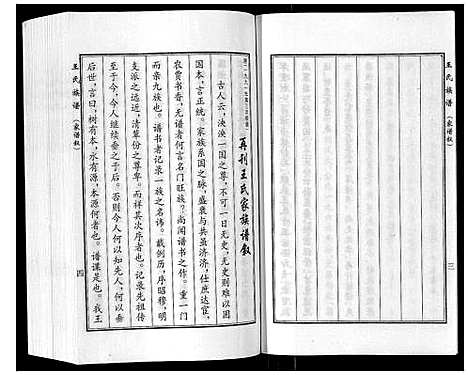 再刊王氏家族谱叙
古人云，泱泱一国之尊，不可一日无史，无史则难以固
国本，言正统。家族系国之脉，盛衰与共虽济济，仕庶达宦，
农贾书香，无谱者何言名门旺族？尚闻谱书之作。重一门
而亲九族也。谱书者记录一族之名讳。载例历，序昭穆，明
支派之远近，清辈份之尊卑。而祥其次序者也。记录先祖传
至于今，今人继续垂之于后。否则今人何以知先人，何以垂
后世，言曰，树有本，水有源，本源何者也。谱谍是也。我王
王氏族谱
（家谱叙）
四
王氏族谱
（家谱叙）
三